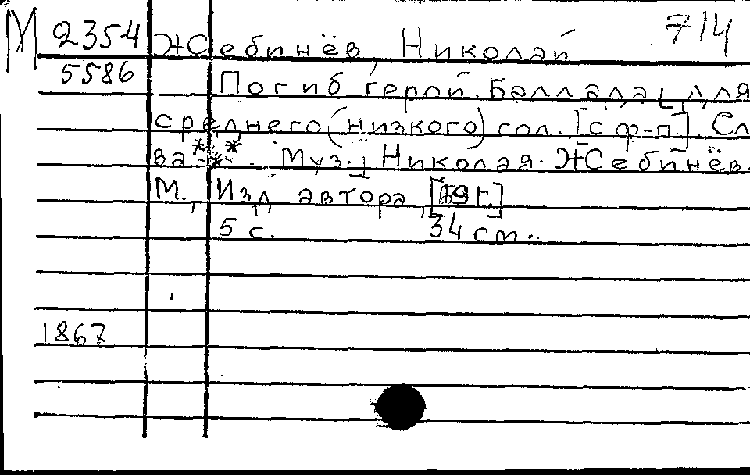 М 2354 Жебинёв, Николай 714
5586 Погиб герой. Баллада для
среднего (низкого) гол. [с ф-п]. Сл
ва ***. Муз. Николая Жебинёва.
М., Изд автора,
5 с. 34 см.
1867